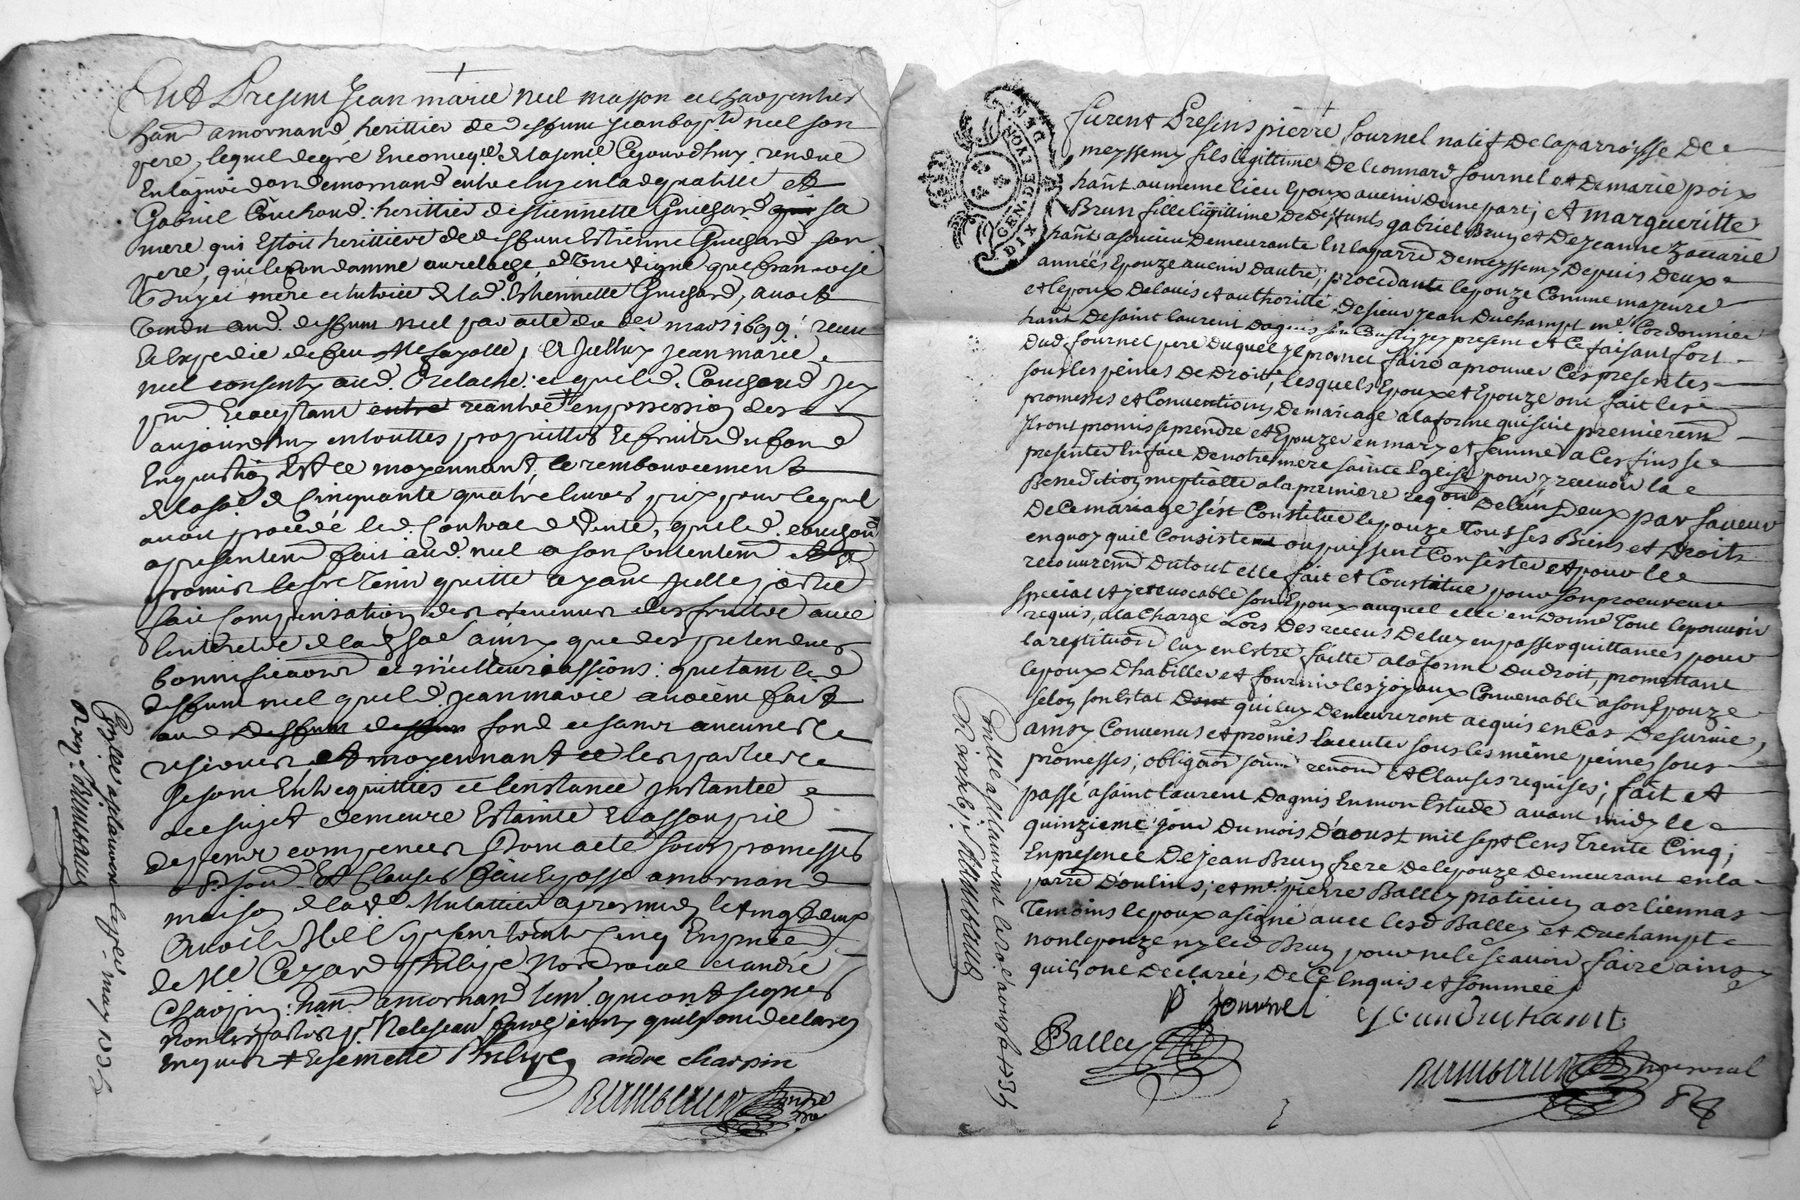 Fut Present Jean marie nel masson et charpentier
hant a mornand herittier de deffunt jean baptte nel son
pere, lequel de gré
en la juridon de mornand entre luy en lad qualitté et
Gabriel Couchoud herittier destiennette Guigard qui sa
mere qui Estoit herittiere de deffunt Estienne Guigard son
pere, qui le condamne au relache de vigne que francoise
mere et tutrice de lad. Esthiennette Guigard, avoit
vendu aud. deffunt nel par acte du mars 1699 receu
Et Expedié de feu Me fayolle, et jcelluy jean marie
nel consenty aud. Relache et que led. Couchoud jcy
pnt Et acceptant entre
aujourdhuy en touttes proprittés et fruits du fond
En question Et ce moyennant le remboursement
de la soe de Cinquante quatre livres prix pour lequel
avoit procedé led. Contrac de vente, que led. couchoud
a presentemt fait aud. nel a son contentemt
promis le faire tenir quitte
fait compensation des revenus des fruits avec
linterets de lad. soe ainsy que des pretendues
bonnifications et meilleurissions que tant led.
deffunt nel que led. jean marie avoient fait
aud deffunt deffunt fond et sans aucune
reserver et moyennant ce les parties
se sont Entrequitties et linstance jntantée
a ce sujet demeure Estainte Et assoupie
depens compencer Dont acte sous promesses
Et Clauses fait Et passé a mornand
maison de la ve Mulattier apres midy le vingt deux
Avril Mil sept cent trente cinq En pnce
de Me Cezard philipe Nore royal et andré
Charpin hant a mornand tem. qui ont signés
non les parties pr. Ne le scavoir faire ainsy quils ont declarés
enquis et de ce sommes Philipe andre charpin
Rambaud
Conllé a St laurent le 7e may 1735
Reçu Rambaud
DIX DEN
GEN. DE
Furent Presens pierre fournel natif de la parroisse de
meyssemy fils legittime de leonnard fournel et de marie poix
hant au meme lieu Epoux avenir dune part; et margueritte
Brun fille legittime de deffunts gabriel Brun et de jeanne Zacarie
hant a soucieu demeurante En la parre de meyssemy depuis deux
années Epouze avenir dautre; procédante lepouze comme majeure
et lepoux de lavis et authorité de sieur jean Duchampt me Cordonnier
hant de saint laurent dagnis jcy present et se faisant fort
dud fournel pere duquel jl promet faire aprouver ces presentes
sous les peines de droitte, lesquels Epoux et Epouze ont fait les
promesses et Conventions de mariage a la forme qui suit premieremt
Jls ont promis se prendre et Epouzer en mary et femme a ces fins se
presenter En face de notre mere sainte Eglise pour y recevoir la
Benediction nuptialle a la premiere reqon de lun deux par faveur
de ce mariage sest Constituée lepouze tous ses Biens et Droits
en quoy quil Consistent ou puissent Consister et pour le
recouvremt du tout elle fait et Constitue pour son procureur
special et jrrevocable son Epoux auquel elle en donne tout le pouvoir
requis, a la Charge Lors des receus de luy en passer quittances pour
la restituon luy en Estre faitte a la forme du droit, promettant
lepoux d'habiller et fournir les joyaux Convenable a son Epouze
selon son Estat Dont qui luy demeureront acquis en Cas de survie,
ainsy Convenus et promis Executer sous les même peines sous
promesses, obligaon soumi renon et Clauses requises; fait et
passé a saint laurent dagnis En mon Estude avant midy le
quinzieme jour du mois d'aoust mil sept cens trente Cinq;
En presence de jean Brun frere de lepouze demeurant en la
parre d'oulins; et me pierre Balley praticien a orliennas
Temoins lepoux a signé avec lesd Balley et Duchampt
non lepouze ny led Brun pour ne le scavoir faire ainsy
quils ont declarés, de ce Enquis et sommés
P fournel
Jean duchamt
Balley
Rambaud no royal
Conllé a St laurent le 20e aoust 1735
Rambaud